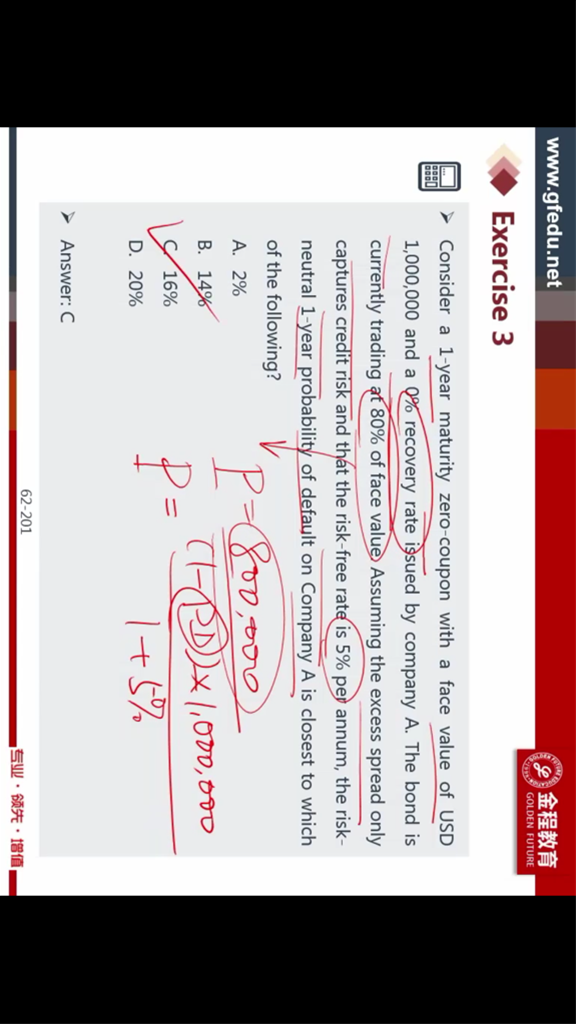 www.gfedu.net
Exercise 3
金程教育
GOLDEN FUTURE
➤ Consider a 1-year maturity zero-coupon with a face value of USD
1,000,000 and a 0% recovery rate issued by company A. The bond is
currently trading at 80% of face value. Assuming the excess spread only
captures credit risk and that the risk-free rate is 5% per annum, the risk-
neutral 1-year probability of default on Company A is closest to which
of the following?
A. 2%
B. 14%
C. 16%
D. 20%
➤ Answer: C
P = 800,000
P = (1-PD) × 1,000,000
1 + 5%
62-201
专业·领先·增值